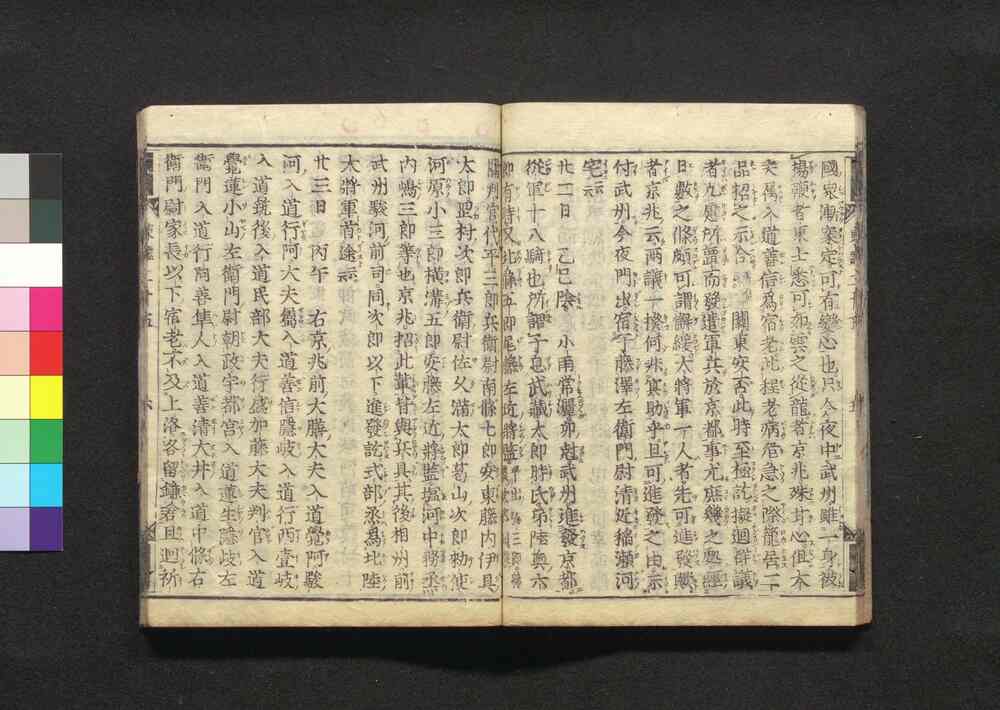 國衆漸案定可有變心也只今夜中武州雖一身被
揚鞭者東士悉可如雲之從龍者京兆殊甘心但大
夫属入道善信為宿老此程老病危急之際籠居二
品招之示合 關東安否此時至極訖擬廻群議
者凡慮所謂而發遣軍兵於京都事尤庶幾之處經
日數之條頗可謂懈緩大將軍一人者先可進發歟
者京兆云兩議一揆何非冥助乎且可進發之由示
付武州今夜門出宿于藤澤左衛門尉清近稲瀬河
宅云云
廿二日 乙巳陰 小雨常灑卯尅武州進發京都
從軍十八騎也所謂子息武藏太郎時氏弟陸奥六
郎有時又北條五郎尾藤左近將監
關判官代平三郎兵衛尉南條七郎安東藤内伊具
太郎盟村次郎兵衛尉佐久滿太郎葛山次郎勅使
河原小三郎横溝五郎安藤左近將監塩河中務丞
内嶋三郎等也京兆招此輩皆與兵具其後相州前
武州駿河前司同次郎以下進發訖式部丞為北陸
大將軍首途云云
廿三日 丙午 右京兆前大膳大夫入道覺阿駿
河入道行阿大夫属入道善信隱岐入道行西壹岐
入道筑後入道民部大夫行盛加藤大夫判官入道
覺蓮小山左衛門尉朝政宇都宮入道蓮生隱岐左
衛門入道行阿善隼人入道善清大井入道中條右
衛門尉家長以下宿老不及上洛各留鎌倉且廻祈